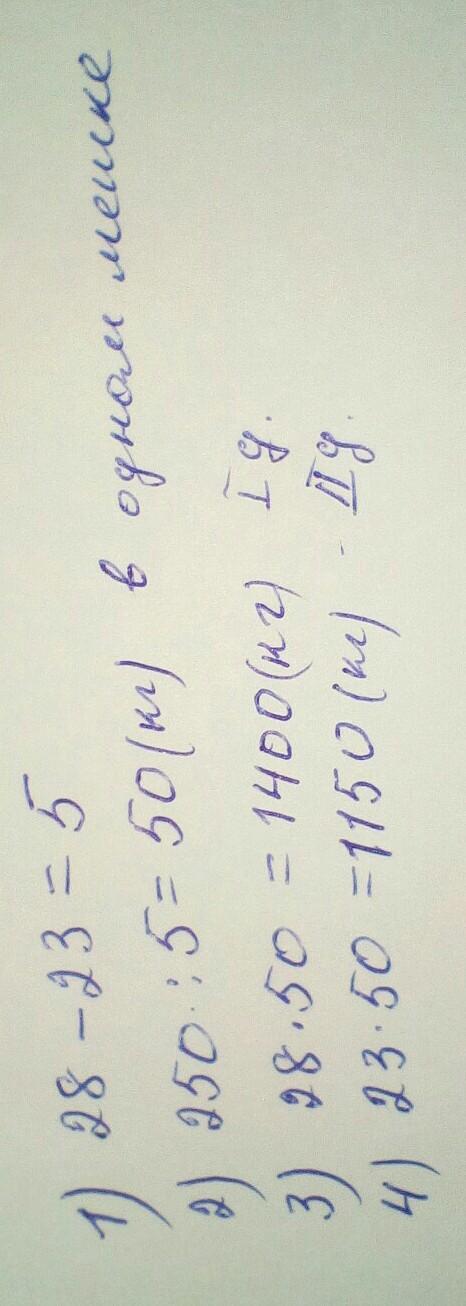 1) 28 - 23 = 5
2) 250 : 5 = 50 (кг) в одном мешке
3) 28 · 50 = 1400 (кг) I д.
4) 23 · 50 = 1150 (кг) - II д.